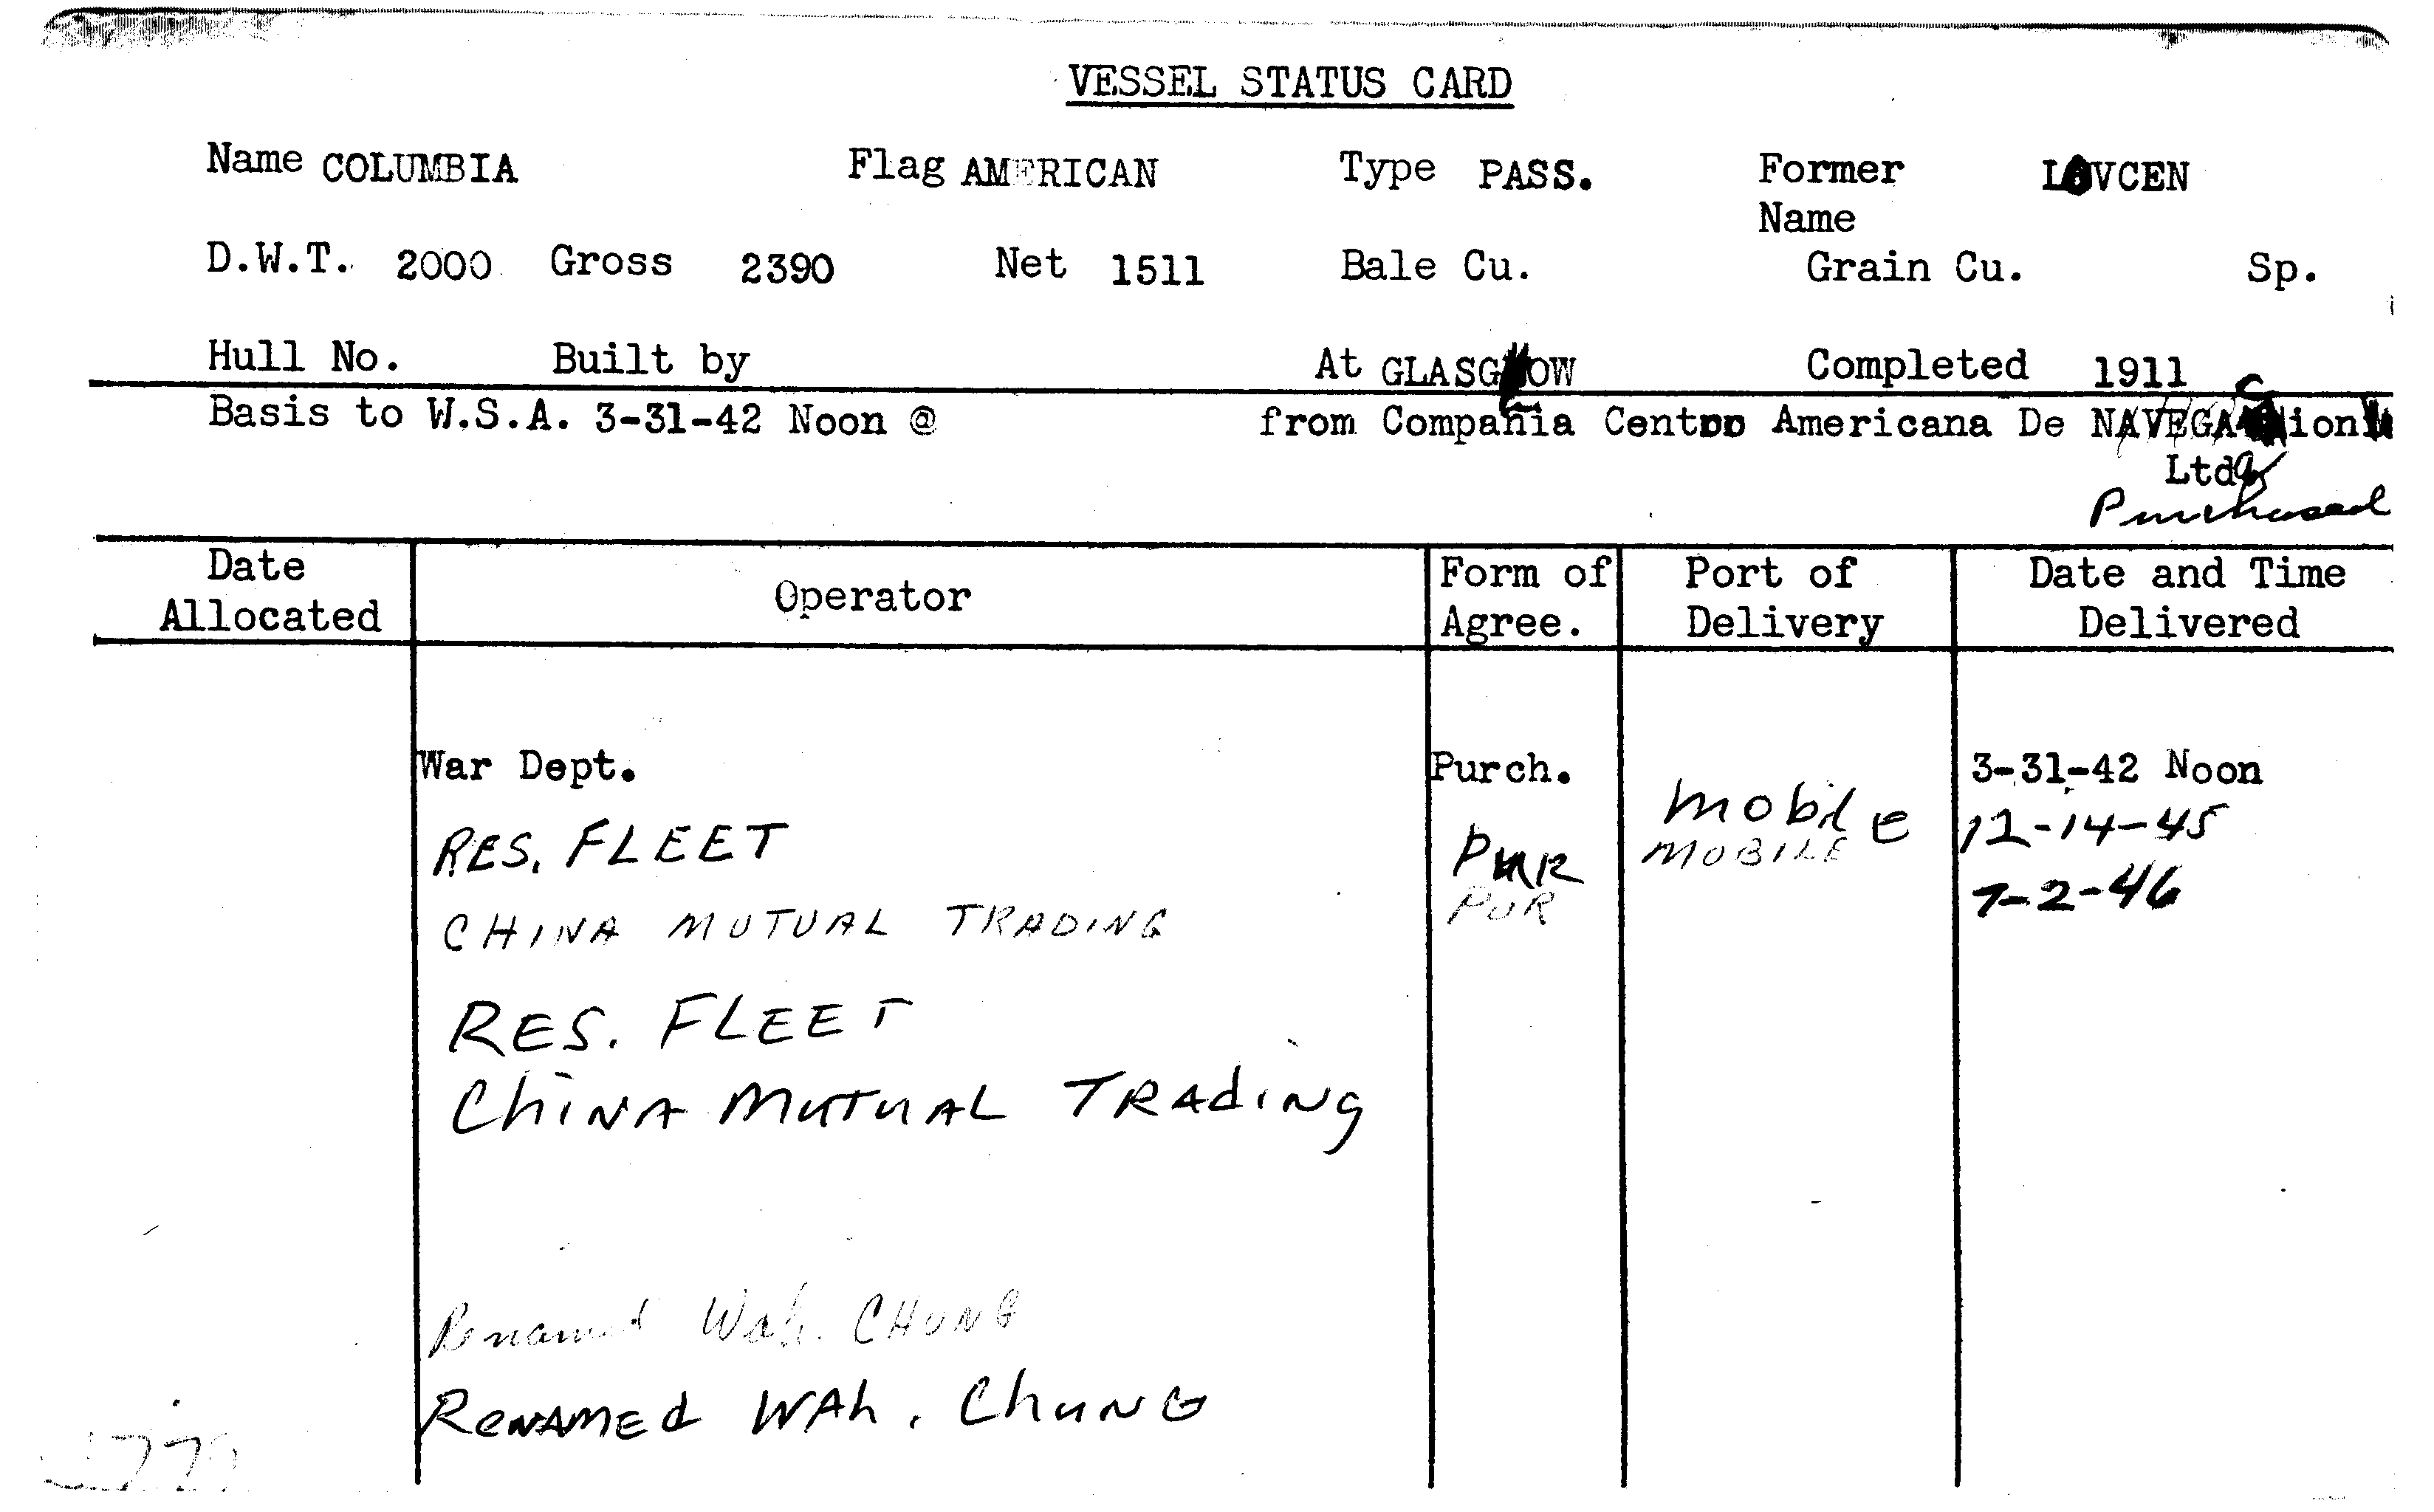 VESSEL STATUS CARD
Name COLUMBIA Flag AMERICAN Type PASS. Former Name LOVCEN
D.W.T. 2000 Gross 2390 Net 1511 Bale Cu. Grain Cu. Sp.
Hull No. Built by At GLASGOW Completed 1911
Basis to W.S.A. 3-31-42 Noon @ from Compañia Centro Americana De NAVEGAcion
Ltda
Purchased
Date Allocated Operator Form of Agree. Port of Delivery Date and Time Delivered
War Dept. Purch. 3-31-42 Noon
RES. FLEET PUR Mobile 12-14-45
CHINA MUTUAL TRADING PUR MOBILE 7-2-46
RES. FLEET
ChiNA MUTUAL TRAdiNg
Renamed Wah. CHUNG
ReNAMEd WAh. ChuNG